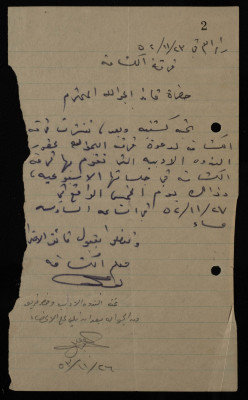 2
رام الله في ٢٣/١١/٥٢
فرقة الكشافة
حضرة قائد الجوالة المحترم
تحية كشفية وبعد، تتشرف فرقة
الكشافة لدعوة فرقة الجوالة لحضور
الندوة الادبية التي تقوم بها فرقة
الكشافة في جلساتها الاسبوعية،
وذلك يوم الخميس الواقع في
٢٧/١١/٥٢ في الساعة السادسة
مساء
وتفضلوا بقبول فائق الاحترام
معلم الكشافة
٢٦/١١/٥٢